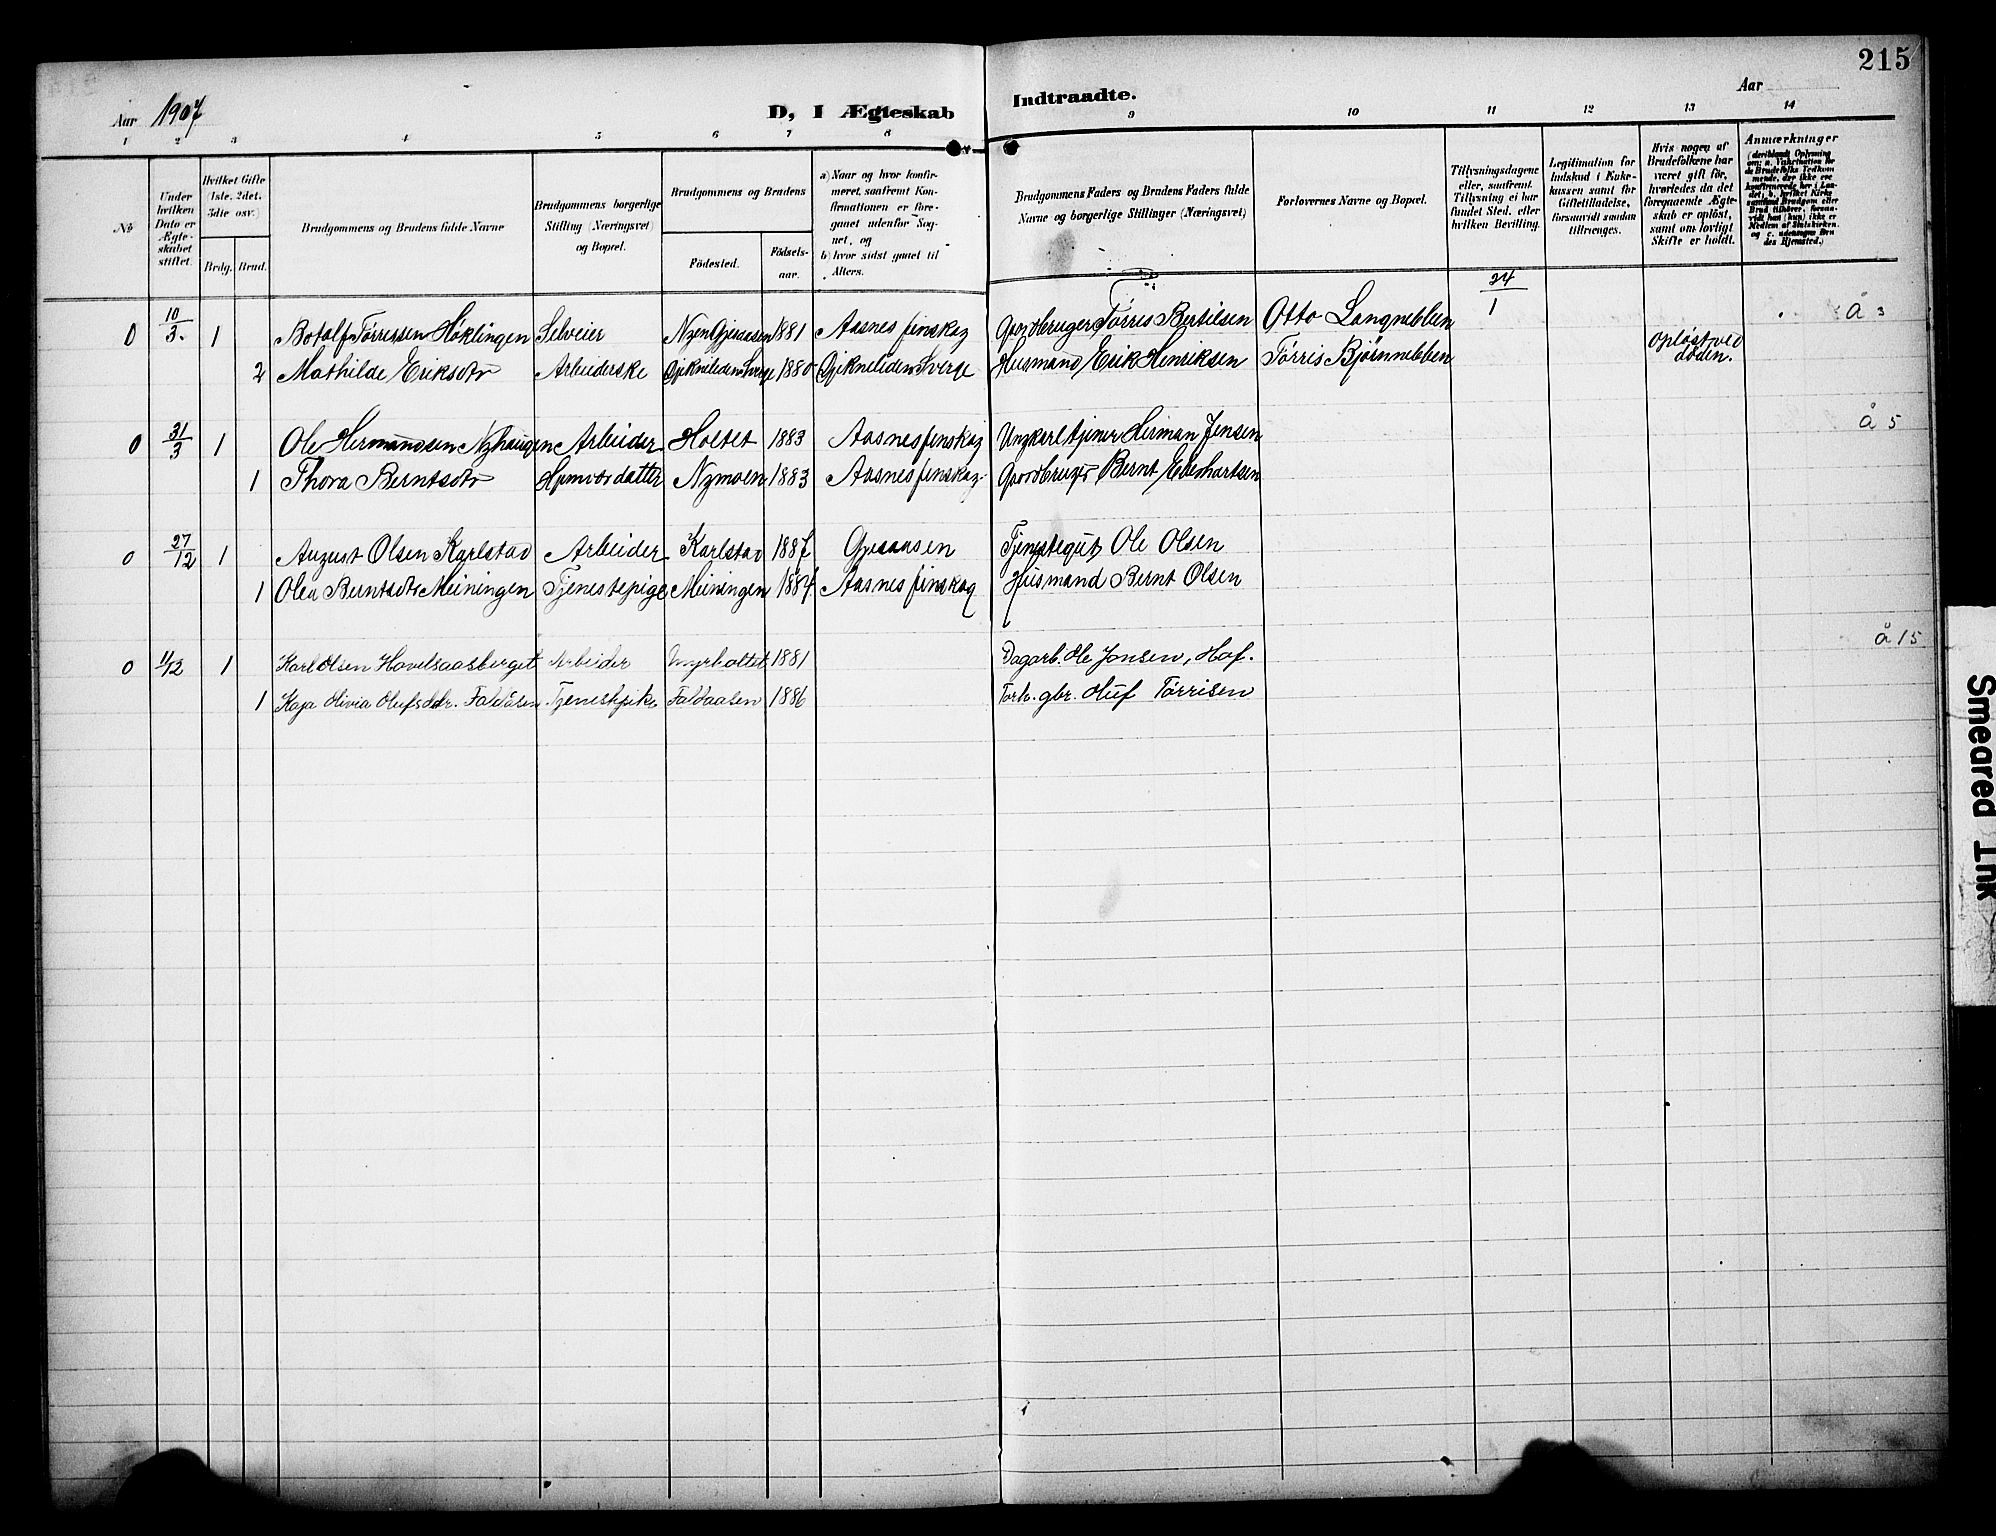 215
Aar 1907
D, I Ægteskab
Indtraadte.
Aar
1 2 3 4 5 6 7 8 9 10 11 12 13 14
No
Under hvilken Dato er Ægteskabet stiftet.
Hvilket Gifte (1ste, 2det, 3die osv.)
Brdg. Brud.
Brudgommens og Brudens fulde Navne
Brudgommens borgerlige Stilling (Næringsvei) og Bopæl.
Brudgommens og Brudens
Fødested.
Fødselsaar.
a) Naar og hvor konfirmeret, saafremt Konfirmationen er foregaaet udenfor Sognet, og
b) hvor sidst gaaet til Alters.
Brudgommens Faders og Brudens Faders fulde Navne og borgerlige Stillinger (Næringsvei)
Forlovernes Navne og Bopæl.
Tillysningsdagene eller, saafremt Tillysning ei har fundet Sted, efter hvilken Bevilling.
Legitimation for Indskud i Enkekassen samt for Giftetilladelse, forsaavidt saadan tiltrænges.
Hvis nogen af Brudefolkene har været gift før, hvorledes da det foregaaende Ægteskab er opløst, samt om lovligt Skifte er holdt.
Anmærkninger
0 10/3. 1 Botolf Tørrissen Høklingen Selveier Nyen Gjesaasen 1881 Aasnes finskog Gaardbruger Tørris Bertilsen Otto Langnebben 24/1 Å 3
2 Mathilde Eriksdtr Arbeiderske Gjekneliden Sverge 1880 Gjekneliden Sverge Husmand Erik Henriksen Tørris Bjørnnebben Opløst ved døden.
0 31/3 1 Ole Hermandsen Nyhaugen Arbeider Holtet 1883 Aasnes finskog Ungkarl tjener Herman Jensen Å 5
1 Thora Berntsdtr Hjemværdatter Nymoen 1883 Aasnes finskog. Gaardbruger Bernt Ekenhartsen
0 27/12 1 August Olsen Karlstad Arbeider Karlstad 1887 Gjesaasen Tjenestegut Ole Olsen
1 Olea Berntsdtr Meiningen Tjenestepige Meiningen 1884 Aasnes finskog Husmand Bernt Olsen
0 11/12 1 Karl Olsen Havelsaasberget Arbeider Myrholtet 1881 Dagarb. Ole Jonsen, Hof. Å 15
1 Kaja Olivia Olufsdtr. Faldåsen Tjenestpike Faldaasen 1886 Forh. gbr. Oluf Tørrisen
Smeared Ink